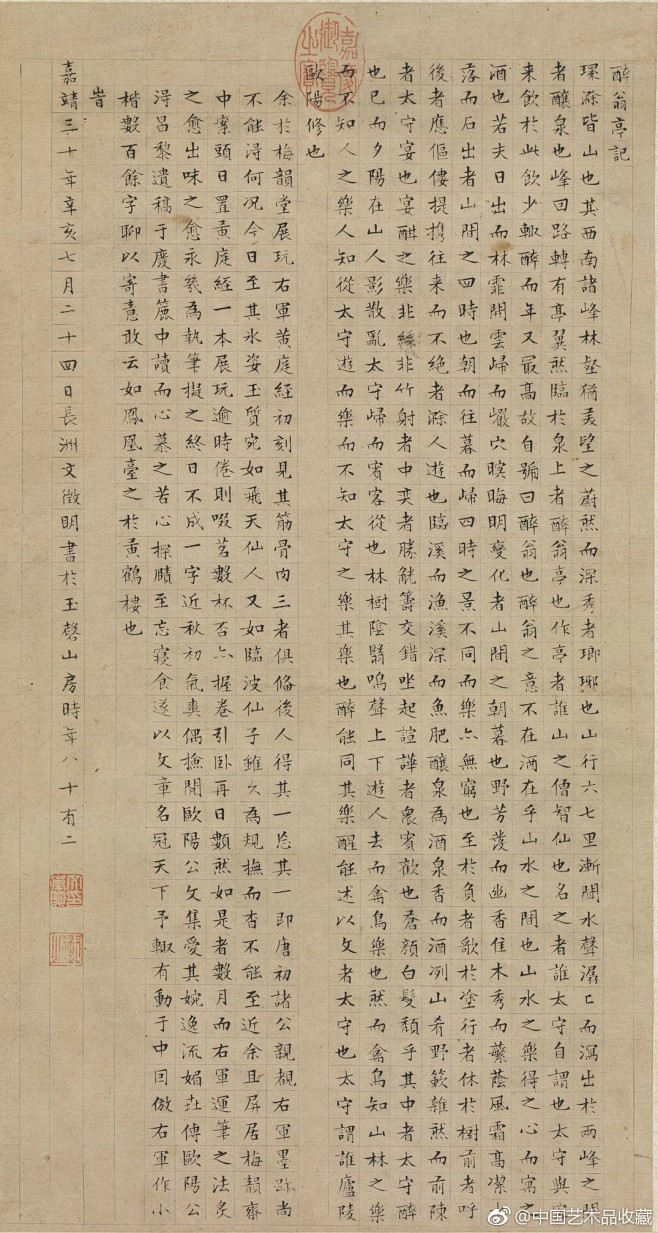 醉翁亭記
環滁皆山也其西南諸峰林壑猶美望之蔚然而深秀者瑯琊也山行六七里漸聞水聲潺〻而瀉出於兩峰之間
者釀泉也峰回路轉有亭翼然臨於泉上者醉翁亭也作亭者誰山之僧智仙也名之者誰太守自謂也太守與客
來飲於此飲少輒醉而年又最高故自號曰醉翁也醉翁之意不在酒在乎山水之間也山水之樂得之心而寓之
酒也若夫日出而林霏開雲歸而巖穴暝晦明變化者山間之朝暮也野芳發而幽香佳木秀而蘩蔭風霜高潔水
落而石出者山間之四時也朝而往暮而歸四時之景不同而樂亦無窮也至於負者歌於塗行者休於樹前者呼
後者應傴僂提攜往來而不絕者滁人遊也臨溪而漁溪深而魚肥釀泉為酒泉香而酒冽山肴野蔌雜然而前陳
者太守宴也宴酣之樂非絲非竹射者中奕者勝觥籌交錯坐起諠譁者衆賓歡也蒼顔白髮頹乎其中者太守醉
也已而夕陽在山人影散亂太守歸而賓客從也林樹陰翳鳴聲上下遊人去而禽鳥樂也然而禽鳥知山林之樂
而不知人之樂人知從太守遊而樂而不知太守之樂其樂也醉能同其樂醒能述以文者太守也太守謂誰廬陵
歐陽修也
余於梅韻堂展玩右軍黃庭經初刻見其筋骨肉三者俱備後人得其一忘其一即唐初諸公親覩右軍墨跡尚
不能得何況今日至其氷姿玉質宛如飛天仙人又如臨波仙子雖久為規撫而杳不能至近余且屏居梅韻齋
中案頭日置黃庭經一本展玩逾時倦則啜茗數杯否亦握卷引臥再日數然如是者數月而右軍運筆之法炙
之愈出味之愈永幾為執筆擬之終日不成一字近秋初氣爽偶撿閱歐陽公文集愛其婉逸流媚再傳歐陽公
得昌黎遺稿于廢書簏中讀而心慕之苦心探賾至忘寢食遂以文章名冠天下予輒有動于中因倣右軍作小
楷數百餘字聊以寄意敢云如鳳凰臺之於黃鶴樓也
旹
嘉靖三十年辛亥七月二十四日長洲文徵明書於玉磬山房時年八十有二
嘉慶御覽之寶
@中国艺术品收藏